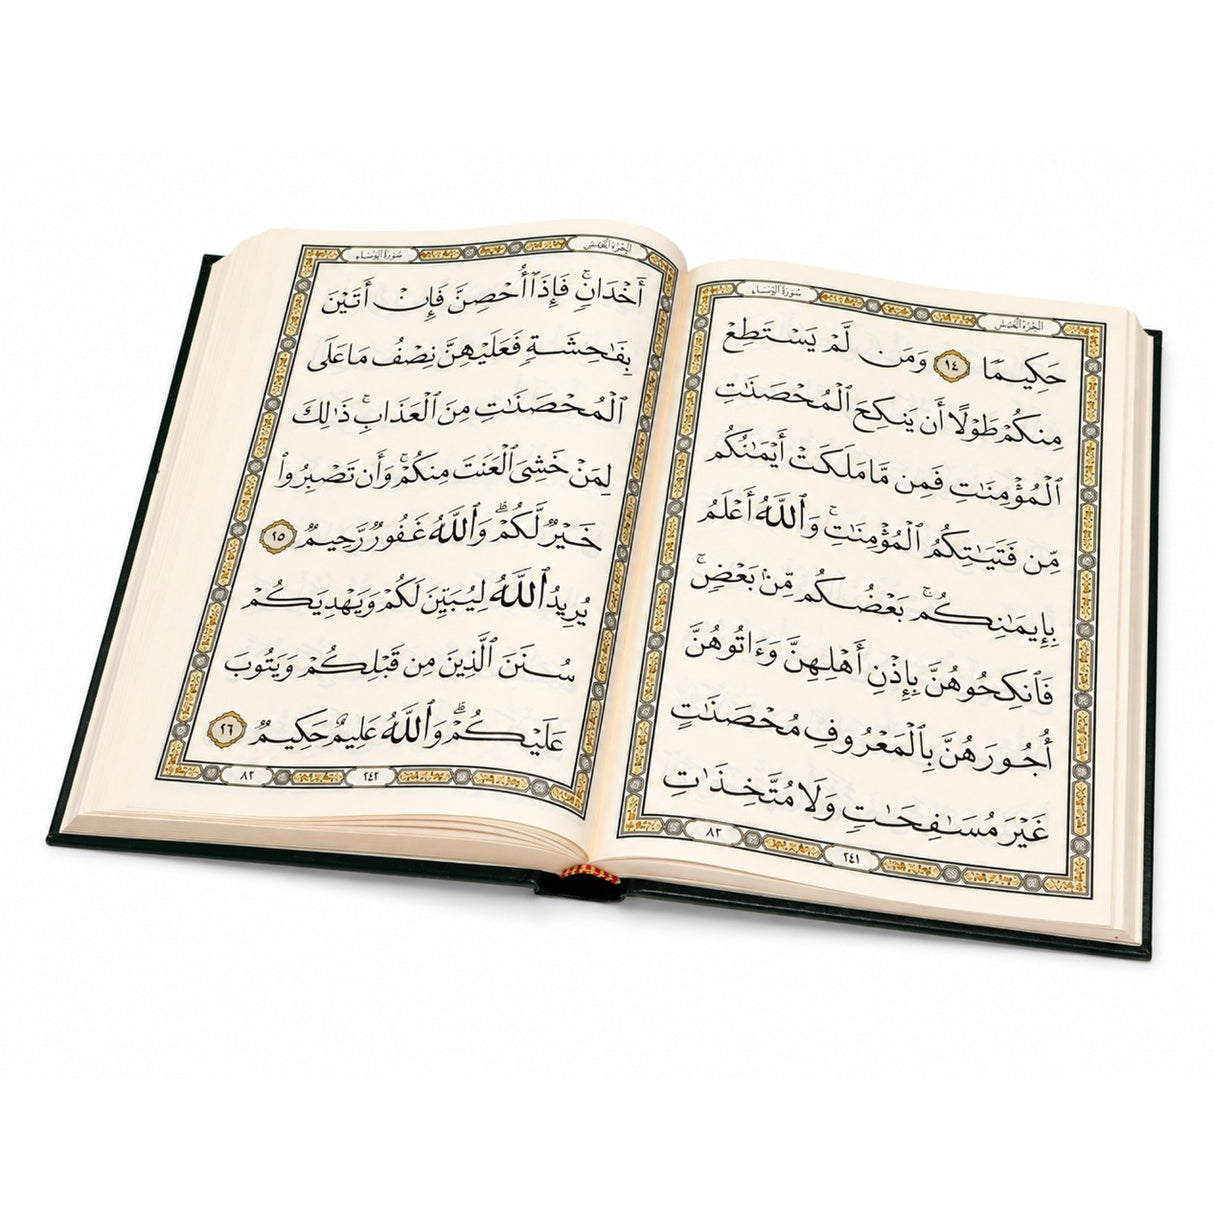 سُورَةُ النِّسَاء
الجُزْءُ الْخَامِسُ
حَكِيمًا ١٤ وَمَن لَّمْ يَسْتَطِعْ
مِنكُمْ طَوْلًا أَن يَنكِحَ ٱلْمُحْصَنَٰتِ
ٱلْمُؤْمِنَٰتِ فَمِن مَّا مَلَكَتْ أَيْمَٰنُكُم
مِّن فَتَيَٰتِكُمُ ٱلْمُؤْمِنَٰتِ ۚ وَٱللَّهُ أَعْلَمُ
بِإِيمَٰنِكُم ۚ بَعْضُكُم مِّنۢ بَعْضٍ ۚ
فَٱنكِحُوهُنَّ بِإِذْنِ أَهْلِهِنَّ وَءَاتُوهُنَّ
أُجُورَهُنَّ بِٱلْمَعْرُوفِ مُحْصَنَٰتٍ
غَيْرَ مُسَٰفِحَٰتٍ وَلَا مُتَّخِذَٰتِ
٨٣
٢٤١
سُورَةُ النِّسَاء
الجُزْءُ الْخَامِسُ
أَخْدَانٍ ۚ فَإِذَآ أُحْصِنَّ فَإِنْ أَتَيْنَ
بِفَٰحِشَةٍ فَعَلَيْهِنَّ نِصْفُ مَا عَلَى
ٱلْمُحْصَنَٰتِ مِنَ ٱلْعَذَابِ ۚ ذَٰلِكَ
لِمَنْ خَشِىَ ٱلْعَنَتَ مِنكُمْ ۚ وَأَن تَصْبِرُوا۟
خَيْرٌ لَّكُمْ ۗ وَٱللَّهُ غَفُورٌ رَّحِيمٌ ١٥
يُرِيدُ ٱللَّهُ لِيُبَيِّنَ لَكُمْ وَيَهْدِيَكُمْ
سُنَنَ ٱلَّذِينَ مِن قَبْلِكُمْ وَيَتُوبَ
عَلَيْكُمْ ۗ وَٱللَّهُ عَلِيمٌ حَكِيمٌ ٢٦
٨٢
٢٤٢